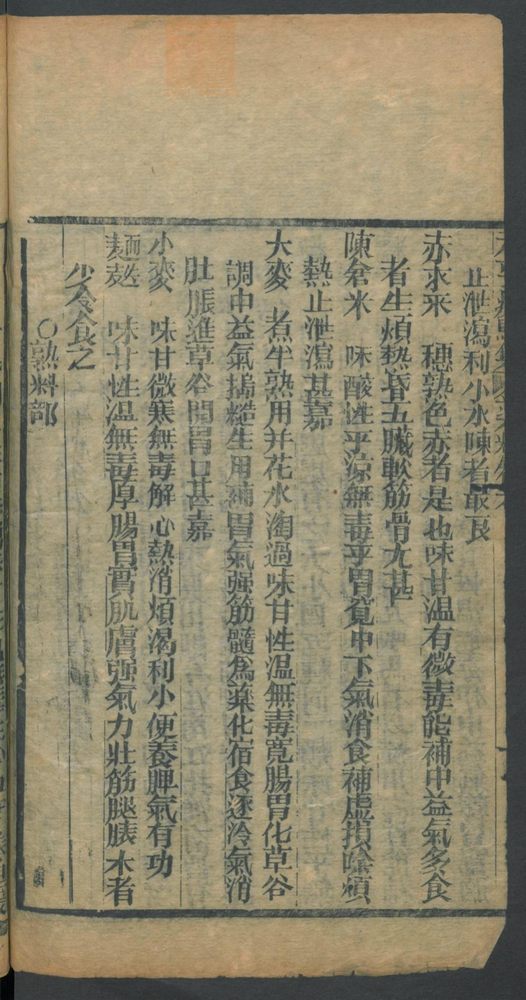 止泄瀉利小水陳者最良
赤求米 穗熟色赤者是也味甘温有微毒能補中益氣多食
者生煩熱昏五臟軟筋骨尤甚
陳倉米 味酸性平凉無毒平胃寬中下氣消食補虛損除煩
熱止泄瀉甚嘉
大麥 煮半熟用井花水淘過味甘性温無毒寬腸胃化草谷
調中益氣搗麨生用補胃氣强筋髓為藥化宿食逐冷氣消
肚脹進草谷開胃口甚嘉
小麥 味甘微寒無毒解心熱消煩渴利小便養脾氣有功
麺麩 味甘性温無毒厚腸胃實肌膚强氣力壯筋腿膁水者
少食食之
○熟料部